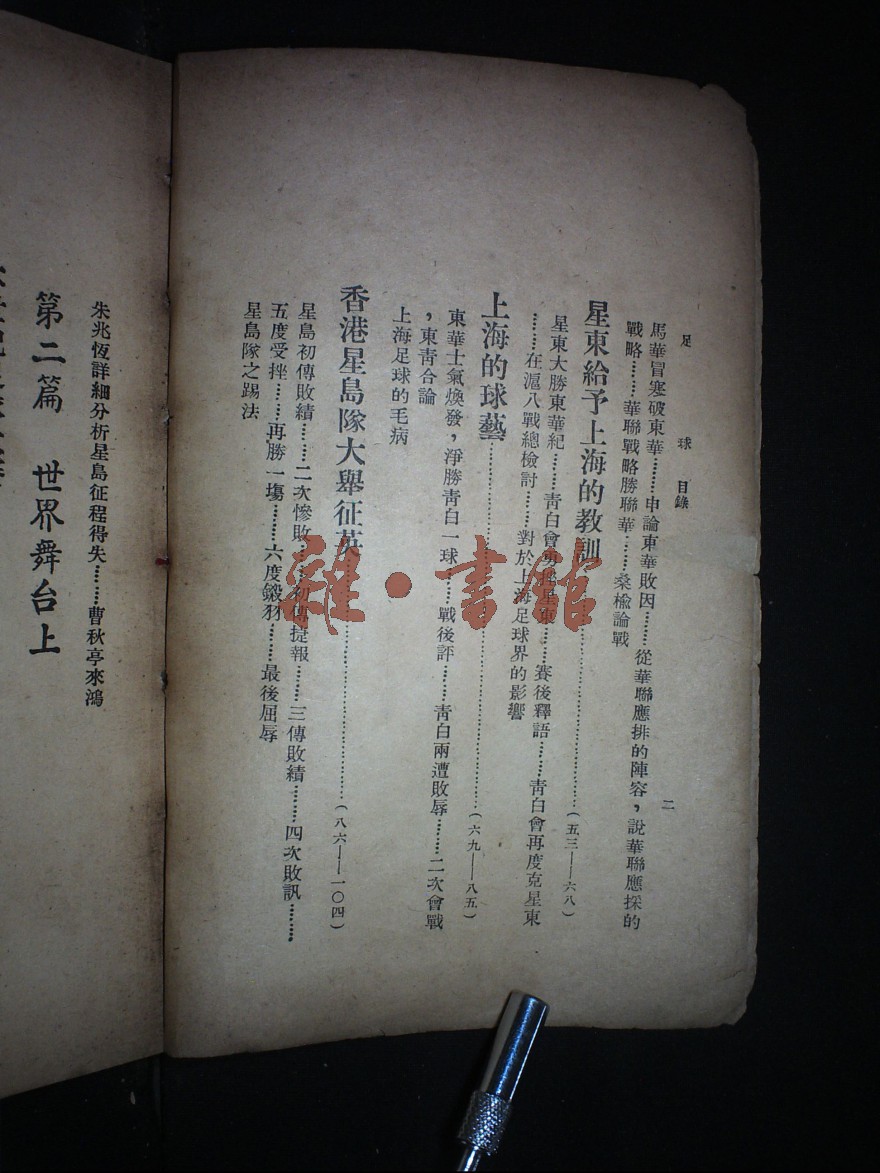 足球 目錄
二
馬華冒寒破東華………申論東華敗因………從華聯應排的陣容，說華聯應採的
戰略………華聯戰略勝聯華………桑楡論戰
星東給予上海的教訓………(五三——六八)
星東大勝東華紀………靑白會勇挫星東………賽後釋語………靑白會再度克星東
………在滬八戰總檢討………對於上海足球界的影響
上海的球藝………(六九——八五)
東華士氣煥發，淨勝靑白一球………戰後評………靑白兩遭敗辱………二次會戰
，東靑合論
上海足球的毛病
香港星島隊大舉征英………(八六——一〇四)
星島初傳敗績………二次慘敗………初傳捷報………三傳敗績………四次敗訊………
五度受挫………再勝一塲………六度鎩羽………最後屈辱
星島隊之踢法
朱兆恆詳細分析星島征程得失………曹秋亭來鴻
第二篇 世界舞台上
雜·書館